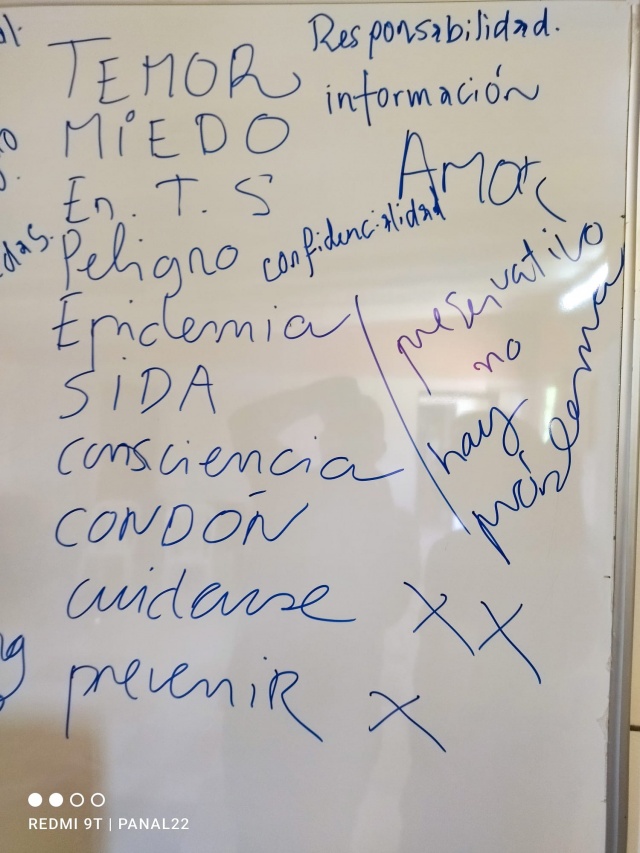 TEMOR
Responsabilidad.
información
MiEDO
AMOR
En. T. S
Peligro
confidencialidad
Epidemia
preservativo
no
hay
problema
SiDA
consciencia
CONDÓN
cuidarse X X
prevenir X
REDMI 9T | PANAL22